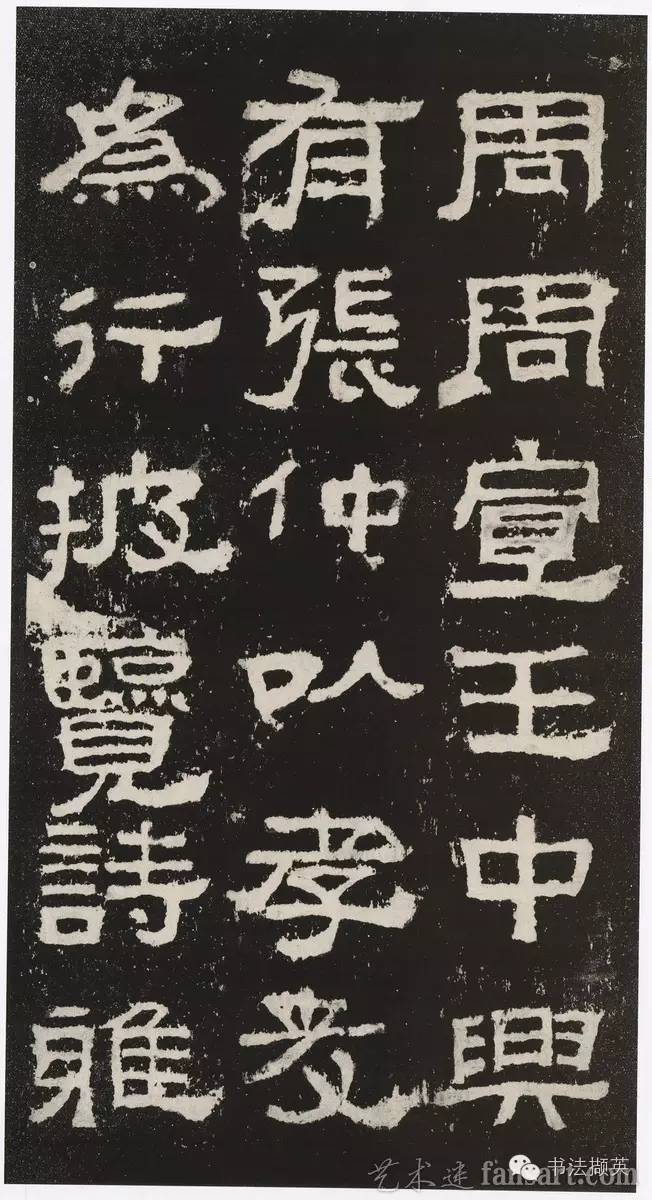 周周宣王中興
有張仲以孝友
為行披覽詩雅
书法撷英
艺术迷 fansart.com